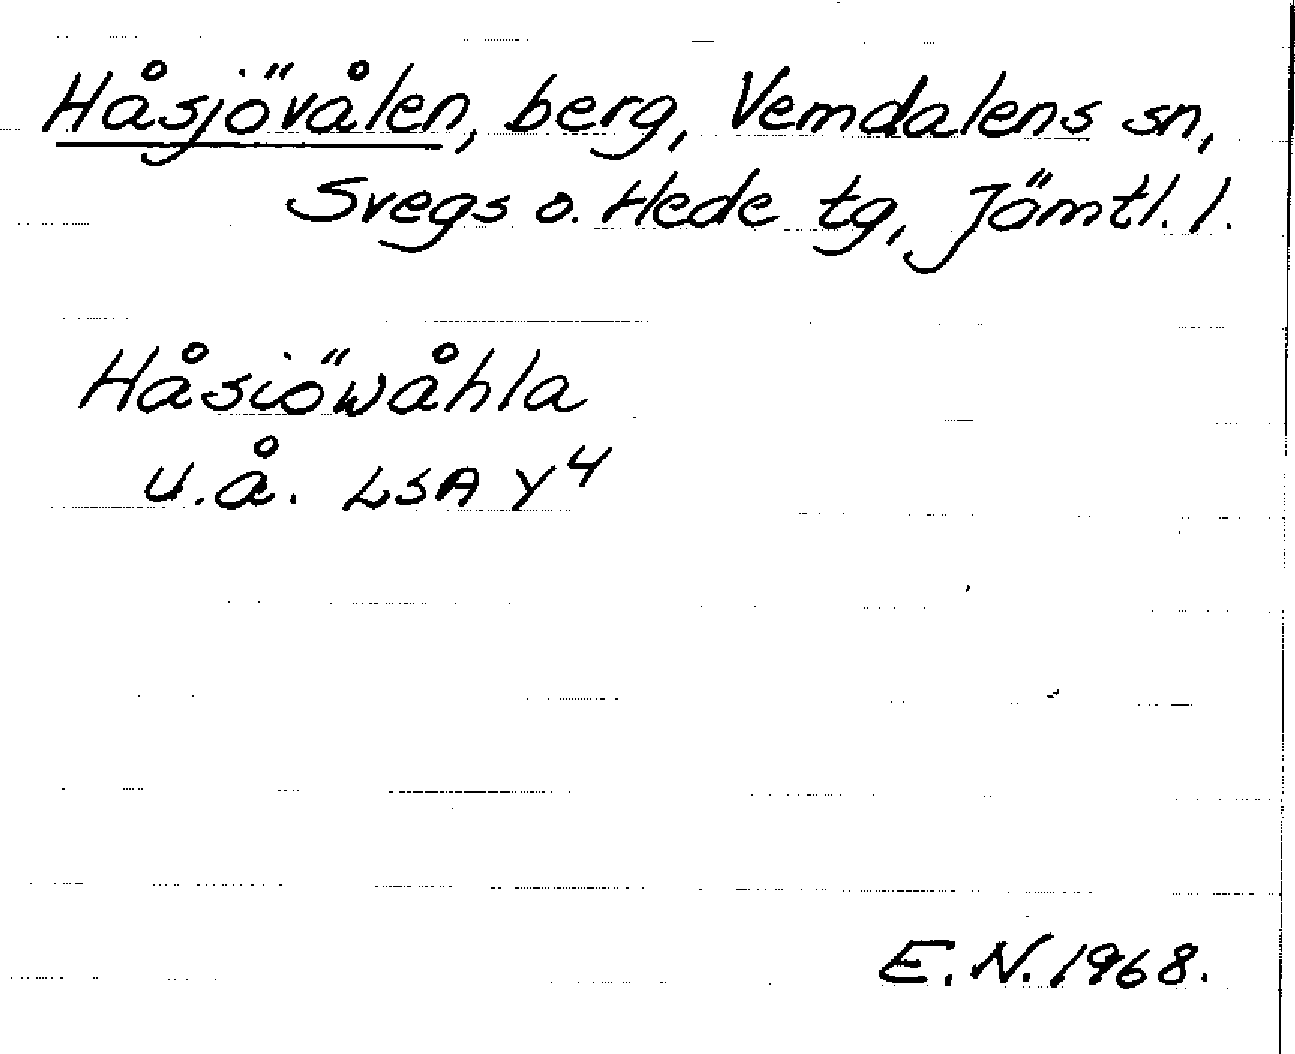 Håsjövålen, berg, Vemdalens sn,
Svegs o. Hede tg, Jämtl. l.
Håsiöwåhla
u.å. LSA Y4
E.N. 1968.